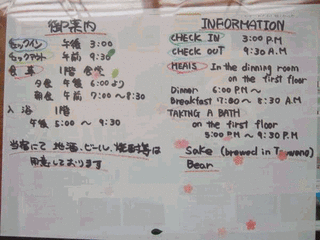 御案内
チェックイン 午後 3:00
チェックアウト 午前 9:30
食事 1階 食堂
夕食 午後 6:00より
朝食 午前 7:00〜8:30
入浴 1階
午後 5:00〜9:30
当館にて 地酒、ビール、
用意しております
INFORMATION
CHECK IN 3:00 PM
CHECK OUT 9:30 A.M
MEALS In the dinning room
on the first floor
Dinner 6:00 PM〜
Breakfast 7:00〜8:30 A.M
TAKING A BATH
on the first floor
5:00 PM〜9:30 P.M
Sake (brewed in
Bear